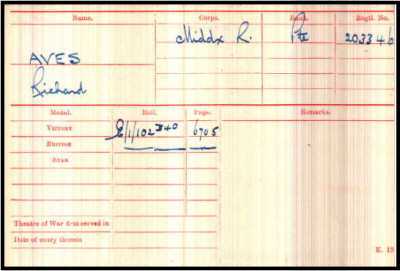 Name. Corps. Rank. Regtl. No.
AVES Middx R. Pte 203346
Richard
Medal. Roll. Page. Remarks.
VICTORY E/1/102 B40 6705
BRITISH
STAR
Theatre of War first served in
Date of entry therein
K. 13